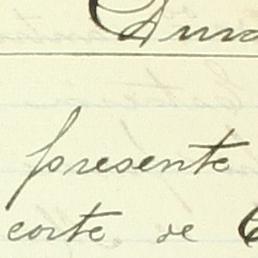 presente
corte de